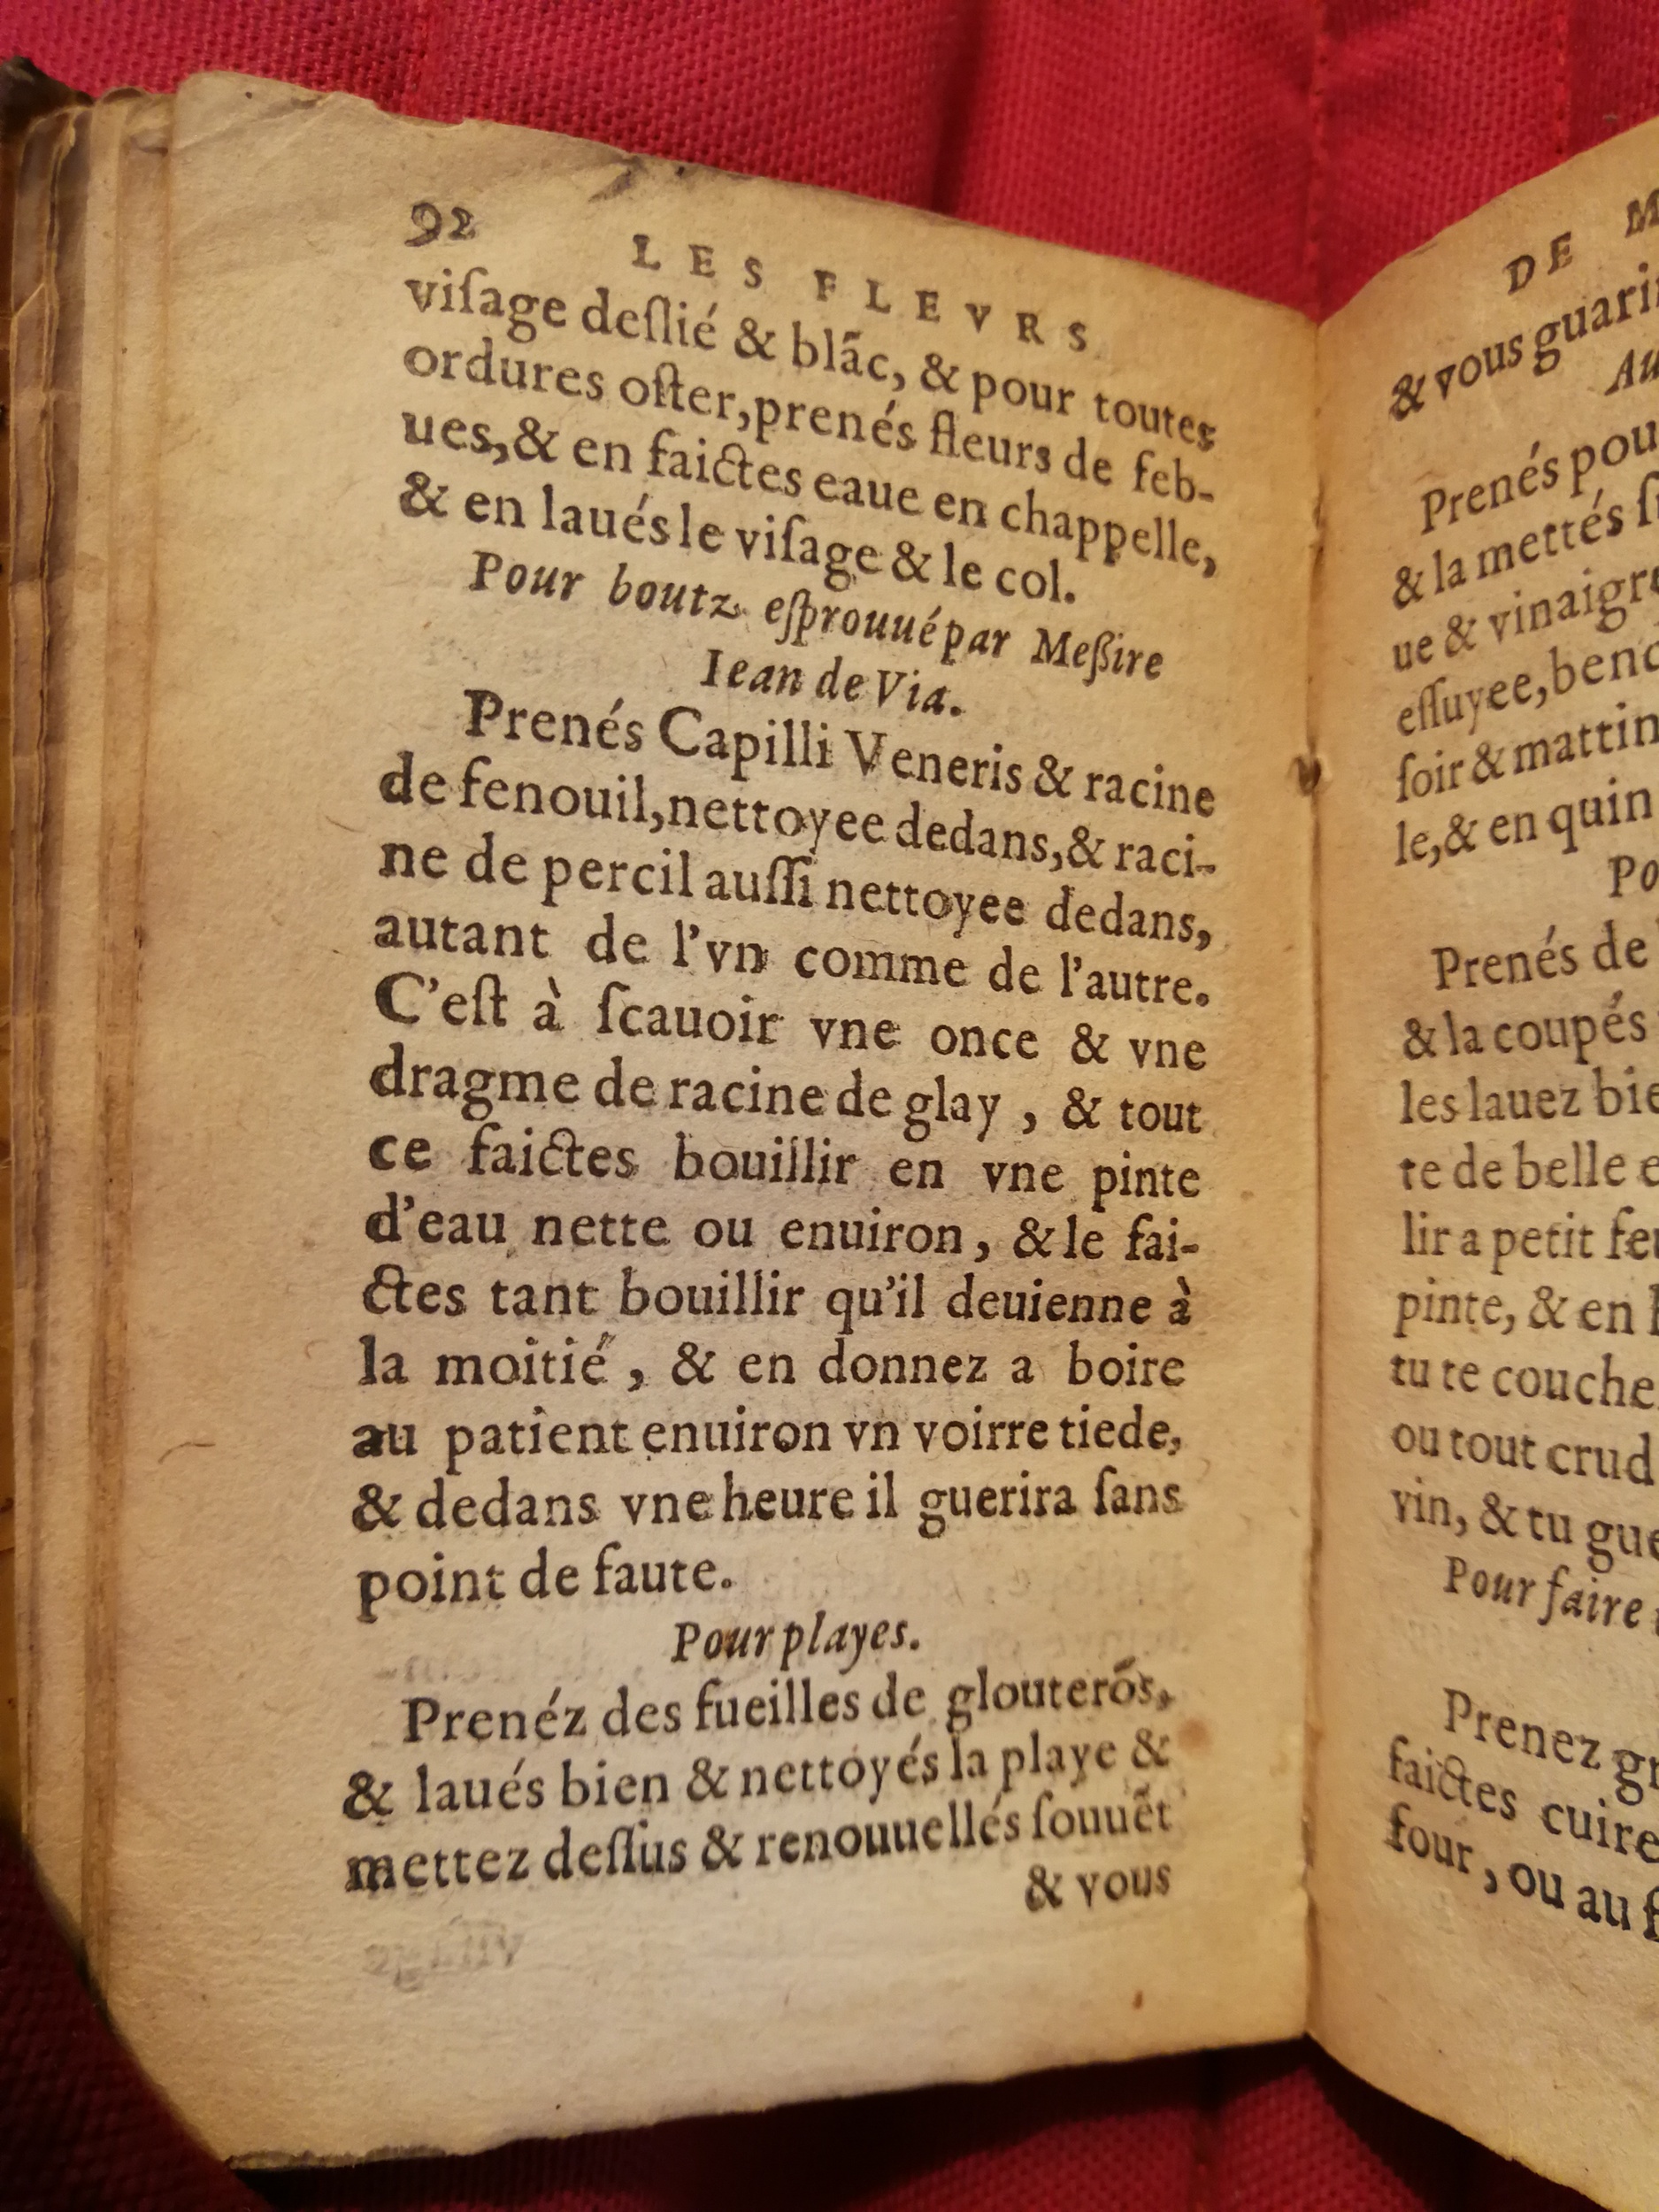 92
LES FLEVRS
viſage deſlié & blãc, & pour toutes
ordures oſter, prenés fleurs de feb-
ues, & en faictes eaue en chappelle,
& en laués le viſage & le col.
Pour boutz eſprouué par Meßire
Iean de Via.
Prenés Capilli Veneris & racine
de fenouil, nettoyee dedans, & raci-
ne de percil auſſi nettoyee dedans,
autant de l'vn comme de l'autre.
C'eſt à ſcauoir vne once & vne
dragme de racine de glay, & tout
ce faictes bouillir en vne pinte
d'eau nette ou enuiron, & le fai-
ctes tant bouillir qu'il deuienne à
la moitié, & en donnez a boire
au patient enuiron vn voirre tiede,
& dedans vne heure il guerira ſans
point de faute.
Pour playes.
Prenéz des fueilles de glouterõs,
& laués bien & nettoyés la playe &
mettez deſſus & renouuellés ſouuẽt
& vous
DE M
& vous guari
Au
Prenés pou
& la mettés ſ
ue & vinaigre
eſſuyee, ben
ſoir & mattin
le, & en quin
Po
Prenés de
& la coupés
les lauez bie
te de belle e
lir a petit feu
pinte, & en
tu te couche
ou tout crud
vin, & tu gue
Pour faire
Prenez gr
faictes cuire
four, ou au f